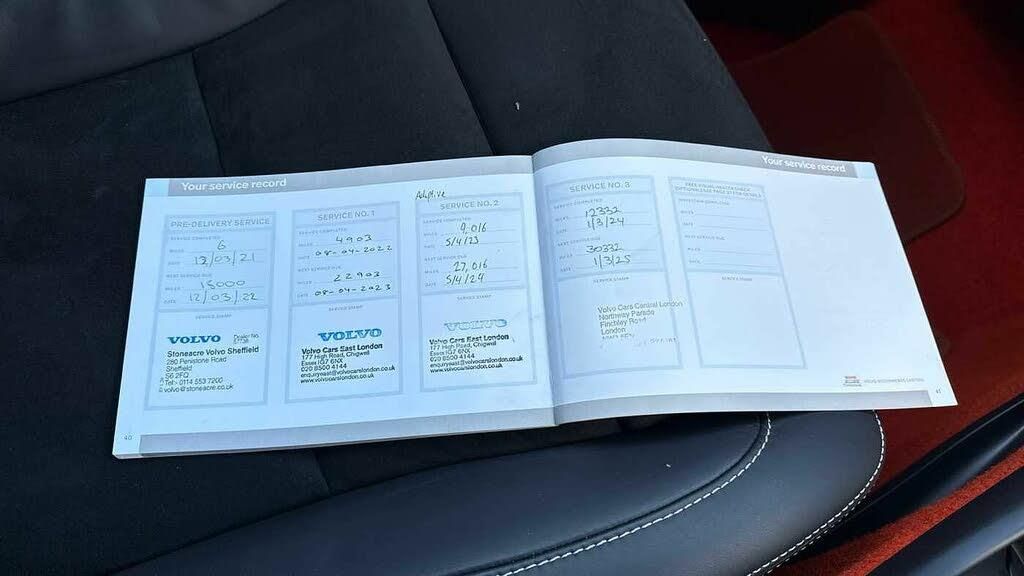 Your service record
PRE-DELIVERY SERVICE
SERVICE COMPLETED
MILES 6
DATE 13/03/21
NEXT SERVICE DUE
MILES 18000
DATE 12/03/22
SERVICE STAMP
VOLVO Dealer No.
Stoneacre Volvo Sheffield
280 Penistone Road
Sheffield
S6 2FQ
Tel:- 0114 553 7200
volvo@stoneacre.co.uk
40
SERVICE NO. 1
SERVICE COMPLETED
MILES 4903
DATE 08-04-2022
NEXT SERVICE DUE
MILES 22903
DATE 08-04-2023
SERVICE STAMP
VOLVO
Volvo Cars East London
177 High Road, Chigwell
Essex IG7 6NX
020 8500 4144
enquiryeast@volvocarslondon.co.uk
www.volvocarslondon.co.uk
Adaptive
SERVICE NO. 2
SERVICE COMPLETED
MILES 9,016
DATE 5/4/23
NEXT SERVICE DUE
MILES 27,016
DATE 5/4/24
SERVICE STAMP
VOLVO
Volvo Cars East London
177 High Road, Chigwell
Essex IG7 6NX
020 8500 4144
enquiryeast@volvocarslondon.co.uk
www.volvocarslondon.co.uk
Your service record
SERVICE NO. 3
SERVICE COMPLETED
MILES 12332
DATE 1/3/24
NEXT SERVICE DUE
MILES 30332
DATE 1/3/25
SERVICE STAMP
Volvo Cars Central London
Northway Parade
Finchley Road
London
FREE VISUAL HEALTH CHECK
OPTIONAL (SEE PAGE 37 FOR DETAILS)
INSPECTION COMPLETED
MILES
DATE
NEXT SERVICE DUE
MILES
DATE
SERVICE STAMP
VOLVO RECOMMENDS CASTROL
41